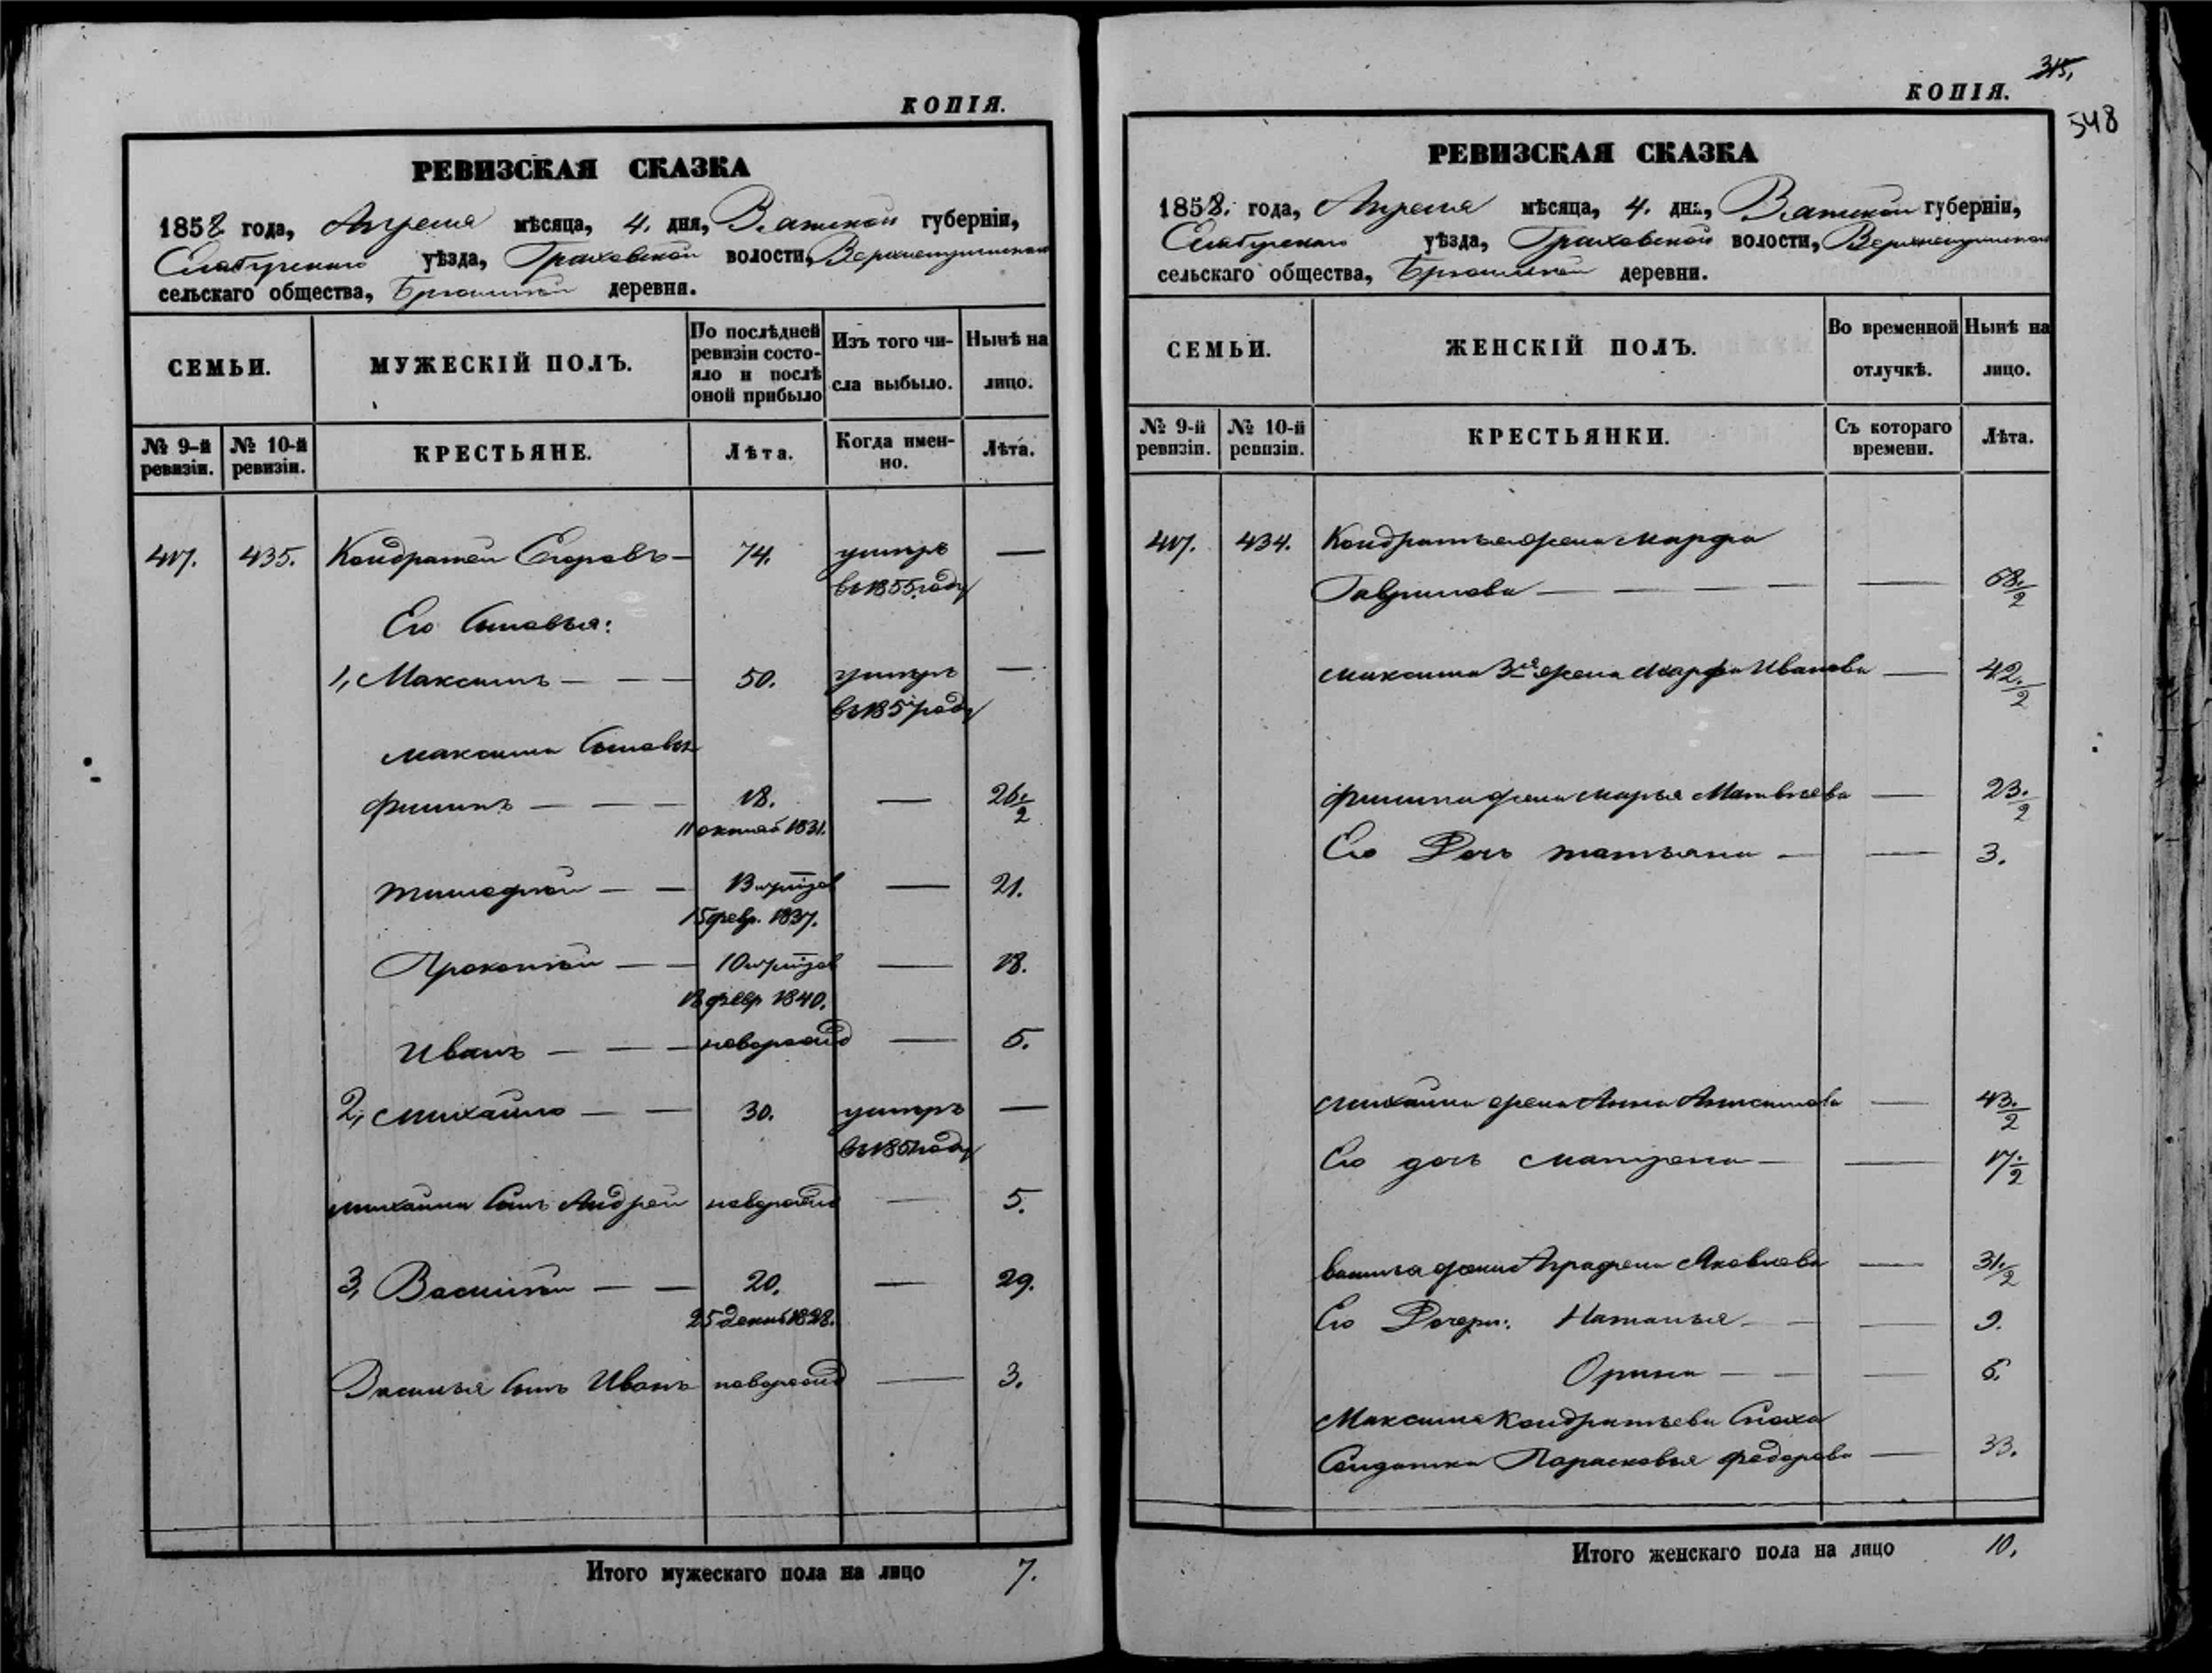 КОПІЯ.
РЕВИЗСКАЯ СКАЗКА
1858 года, Апреля мѣсяца, 4. дня, Вятской губерніи,
Елабугскаго уѣзда, Граховской волости,
сельскаго общества, деревни.
СЕМЬИ.
МУЖЕСКІЙ ПОЛЪ.
По послѣдней
ревизіи состо-
яло и послѣ
оной прибыло
Изъ того чи-
сла выбыло.
Нынѣ на
лицо.
№ 9-й
ревизіи.
№ 10-й
ревизіи.
КРЕСТЬЯНЕ.
Лѣта.
Когда имен-
но.
Лѣта.
417. 435. Кондратей Егоровъ — 74. умеръ —
въ 1855 году
Его Сыновья:
1, Максимъ — — — 50. умеръ —
въ 1857 году
Максима Сыновья
Филипъ — — — 18. — 26 1/2
11 октяб 1831.
Тимофей — — 13 — 21.
15 февр. 1837.
Прокопей — — 10 — 18.
18 февр 1840.
Иванъ — — — новорожд — 5.
2, Михайло — — 30. умеръ —
въ 1851 году
Михайла Сынъ Андрей новорожд — 5.
3, Василей — — 20. — 29.
25 декаб 1828.
Василья Сынъ Иванъ новорожд — 3.
Итого мужескаго пола на лицо 7.
315,
КОПІЯ.
548
РЕВИЗСКАЯ СКАЗКА
1858. года, Апреля мѣсяца, 4. дня, Вятской губерніи,
Елабугскаго уѣзда, Граховской волости,
сельскаго общества, деревни.
СЕМЬИ.
ЖЕНСКІЙ ПОЛЪ.
Во временной
отлучкѣ.
Нынѣ на
лицо.
№ 9-й
ревизіи.
№ 10-й
ревизіи.
КРЕСТЬЯНКИ.
Съ котораго
времени.
Лѣта.
417. 434. Кондратья жена Марфа
Гаврилова — — — — — 68 1/2
Максима 3я жена Марфа Иванова — 42 1/2
Филипа жена Марья Матвѣева — 23 1/2
Его Дочь Татьяна — — 3.
Михайла жена Анна Анисимова — 43 1/2
Его дочь Матрена — — 17 1/2
Василья жена Аграфена Яковлева — 31 1/2
Его Дочери: Наталья — — — 9.
Орина — — — 6.
Максима Кондратьева Сноха
Солдатка Парасковья Федорова — 33.
Итого женскаго пола на лицо 10.